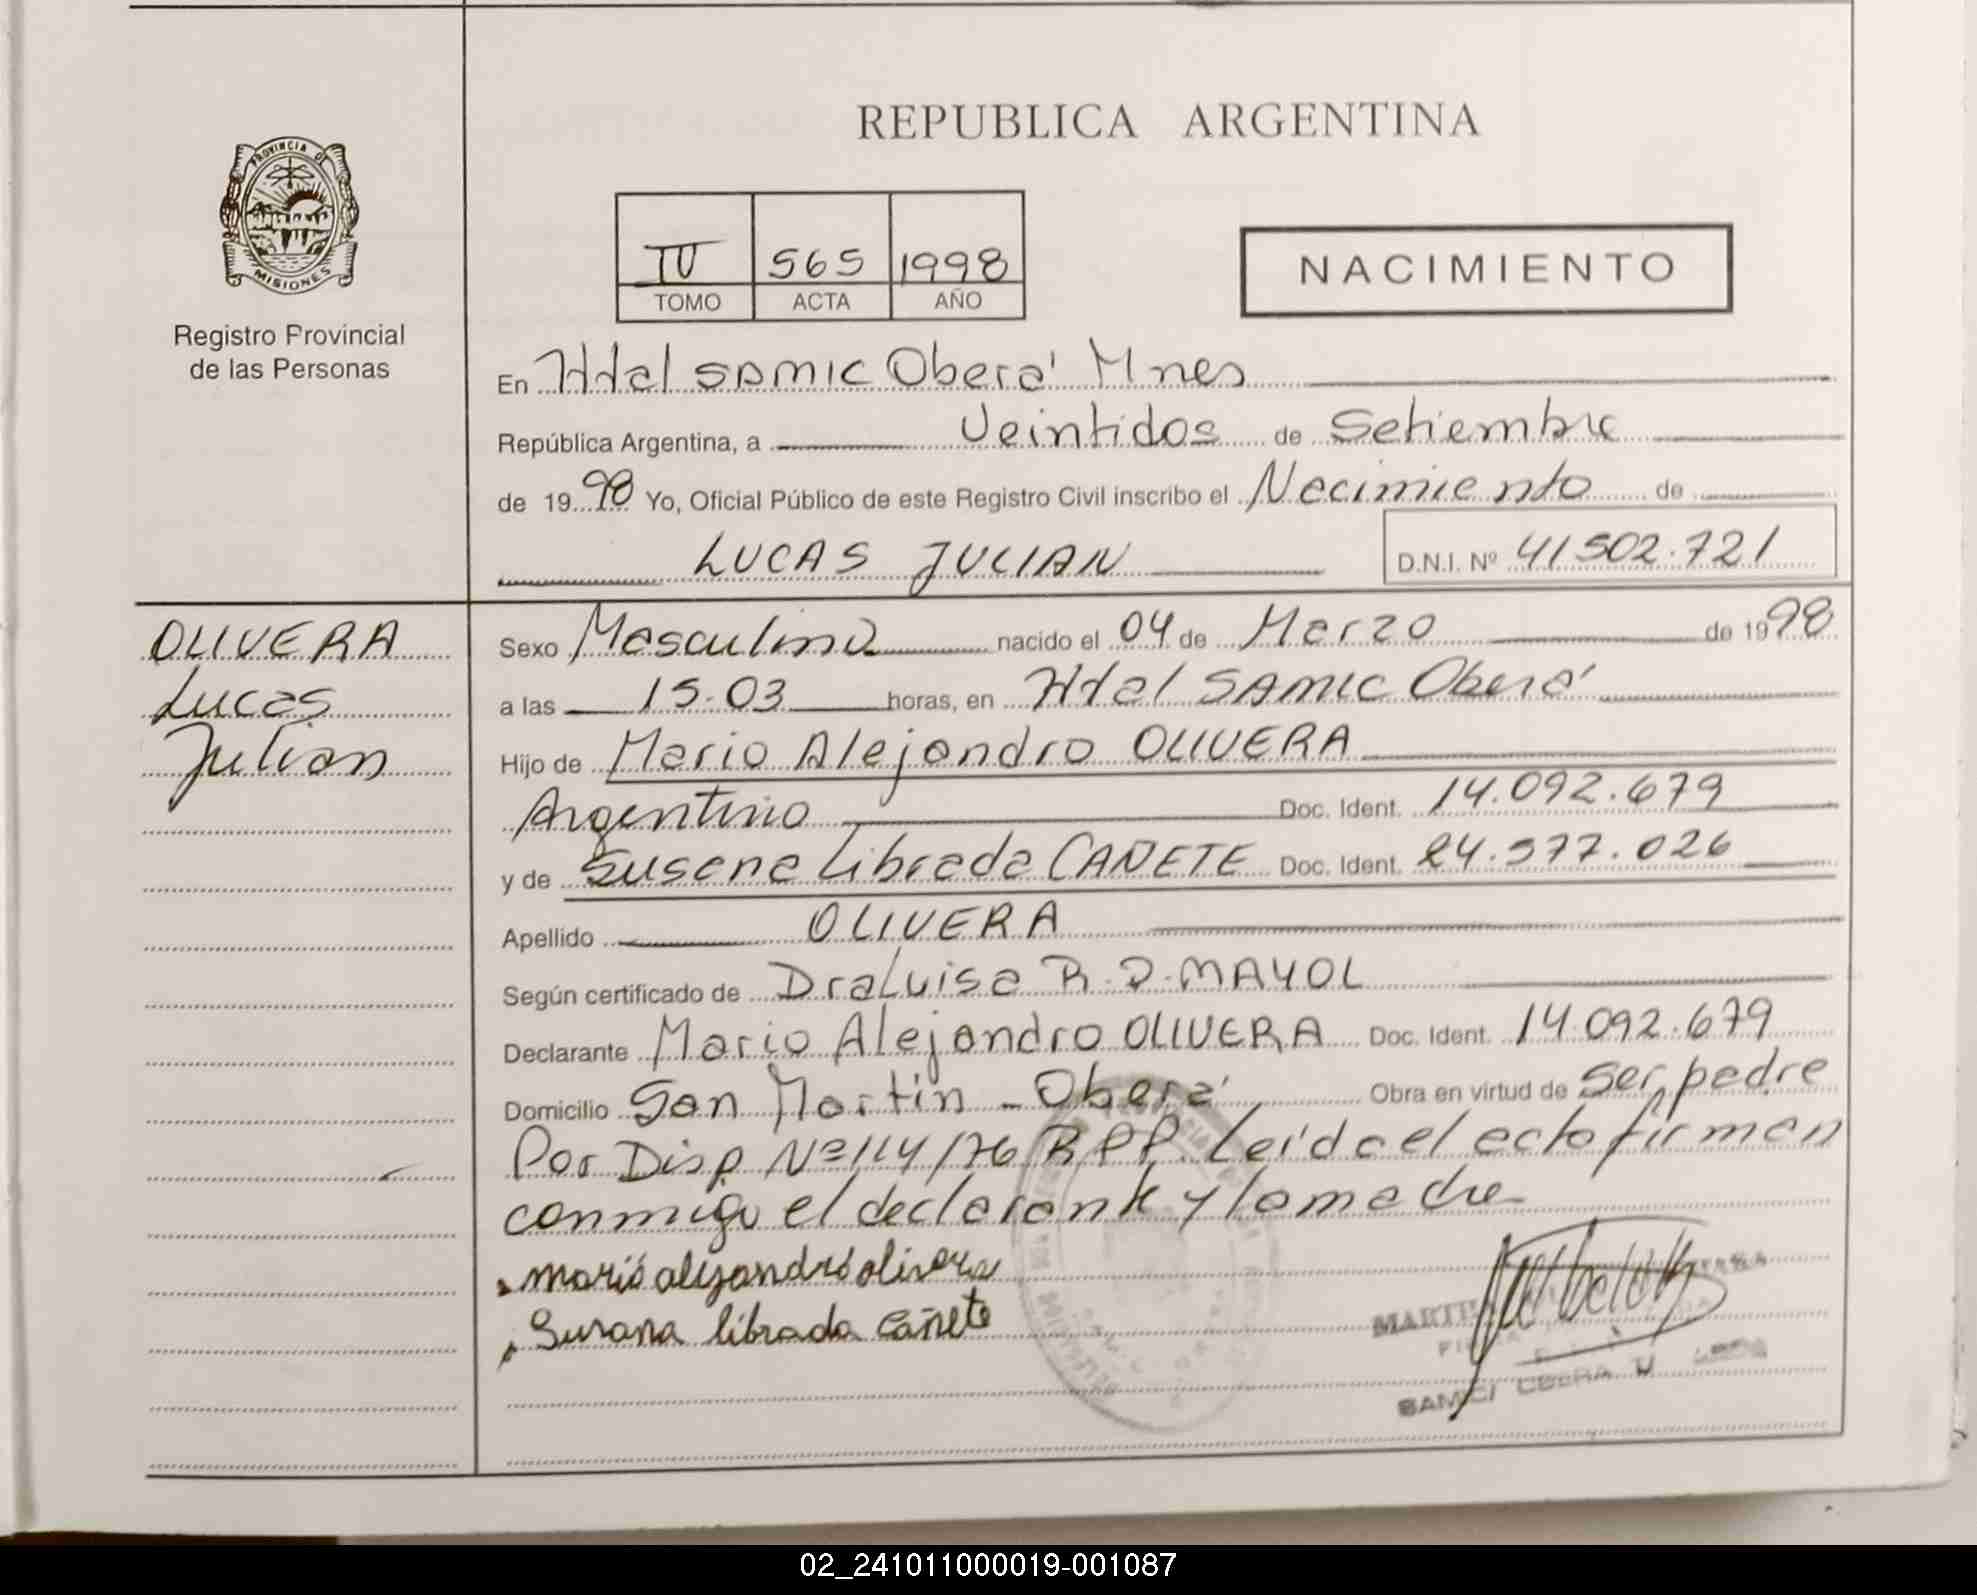 REPUBLICA ARGENTINA
PROVINCIA DE
MISIONES
Registro Provincial
de las Personas
IV 565 1998
TOMO ACTA AÑO
NACIMIENTO
En Htal SAMIC Oberá Mnes
República Argentina, a Veintidos de Setiembre
de 1998 Yo, Oficial Público de este Registro Civil inscribo el Nacimiento de
LUCAS JULIAN D.N.I. Nº 41502.721
OLIVERA
Lucas
Julian
Sexo Masculino nacido el 04 de Marzo de 1998
a las 15.03 horas, en Htal SAMIC Oberá
Hijo de Mario Alejandro OLIVERA
Argentino Doc. Ident. 14.092.679
y de Susana Librada CAÑETE Doc. Ident. 24.577.026
Apellido OLIVERA
Según certificado de Dra Luisa R. D. MAYOL
Declarante Mario Alejandro OLIVERA Doc. Ident. 14.092.679
Domicilio San Martin - Oberá Obra en virtud de ser padre
Por Disp Nº 114/76 R.P.P. Leída el acta firman
conmigo el declarante y la madre
mario alejandro olivera
Susana librada Cañete
02_241011000019-001087